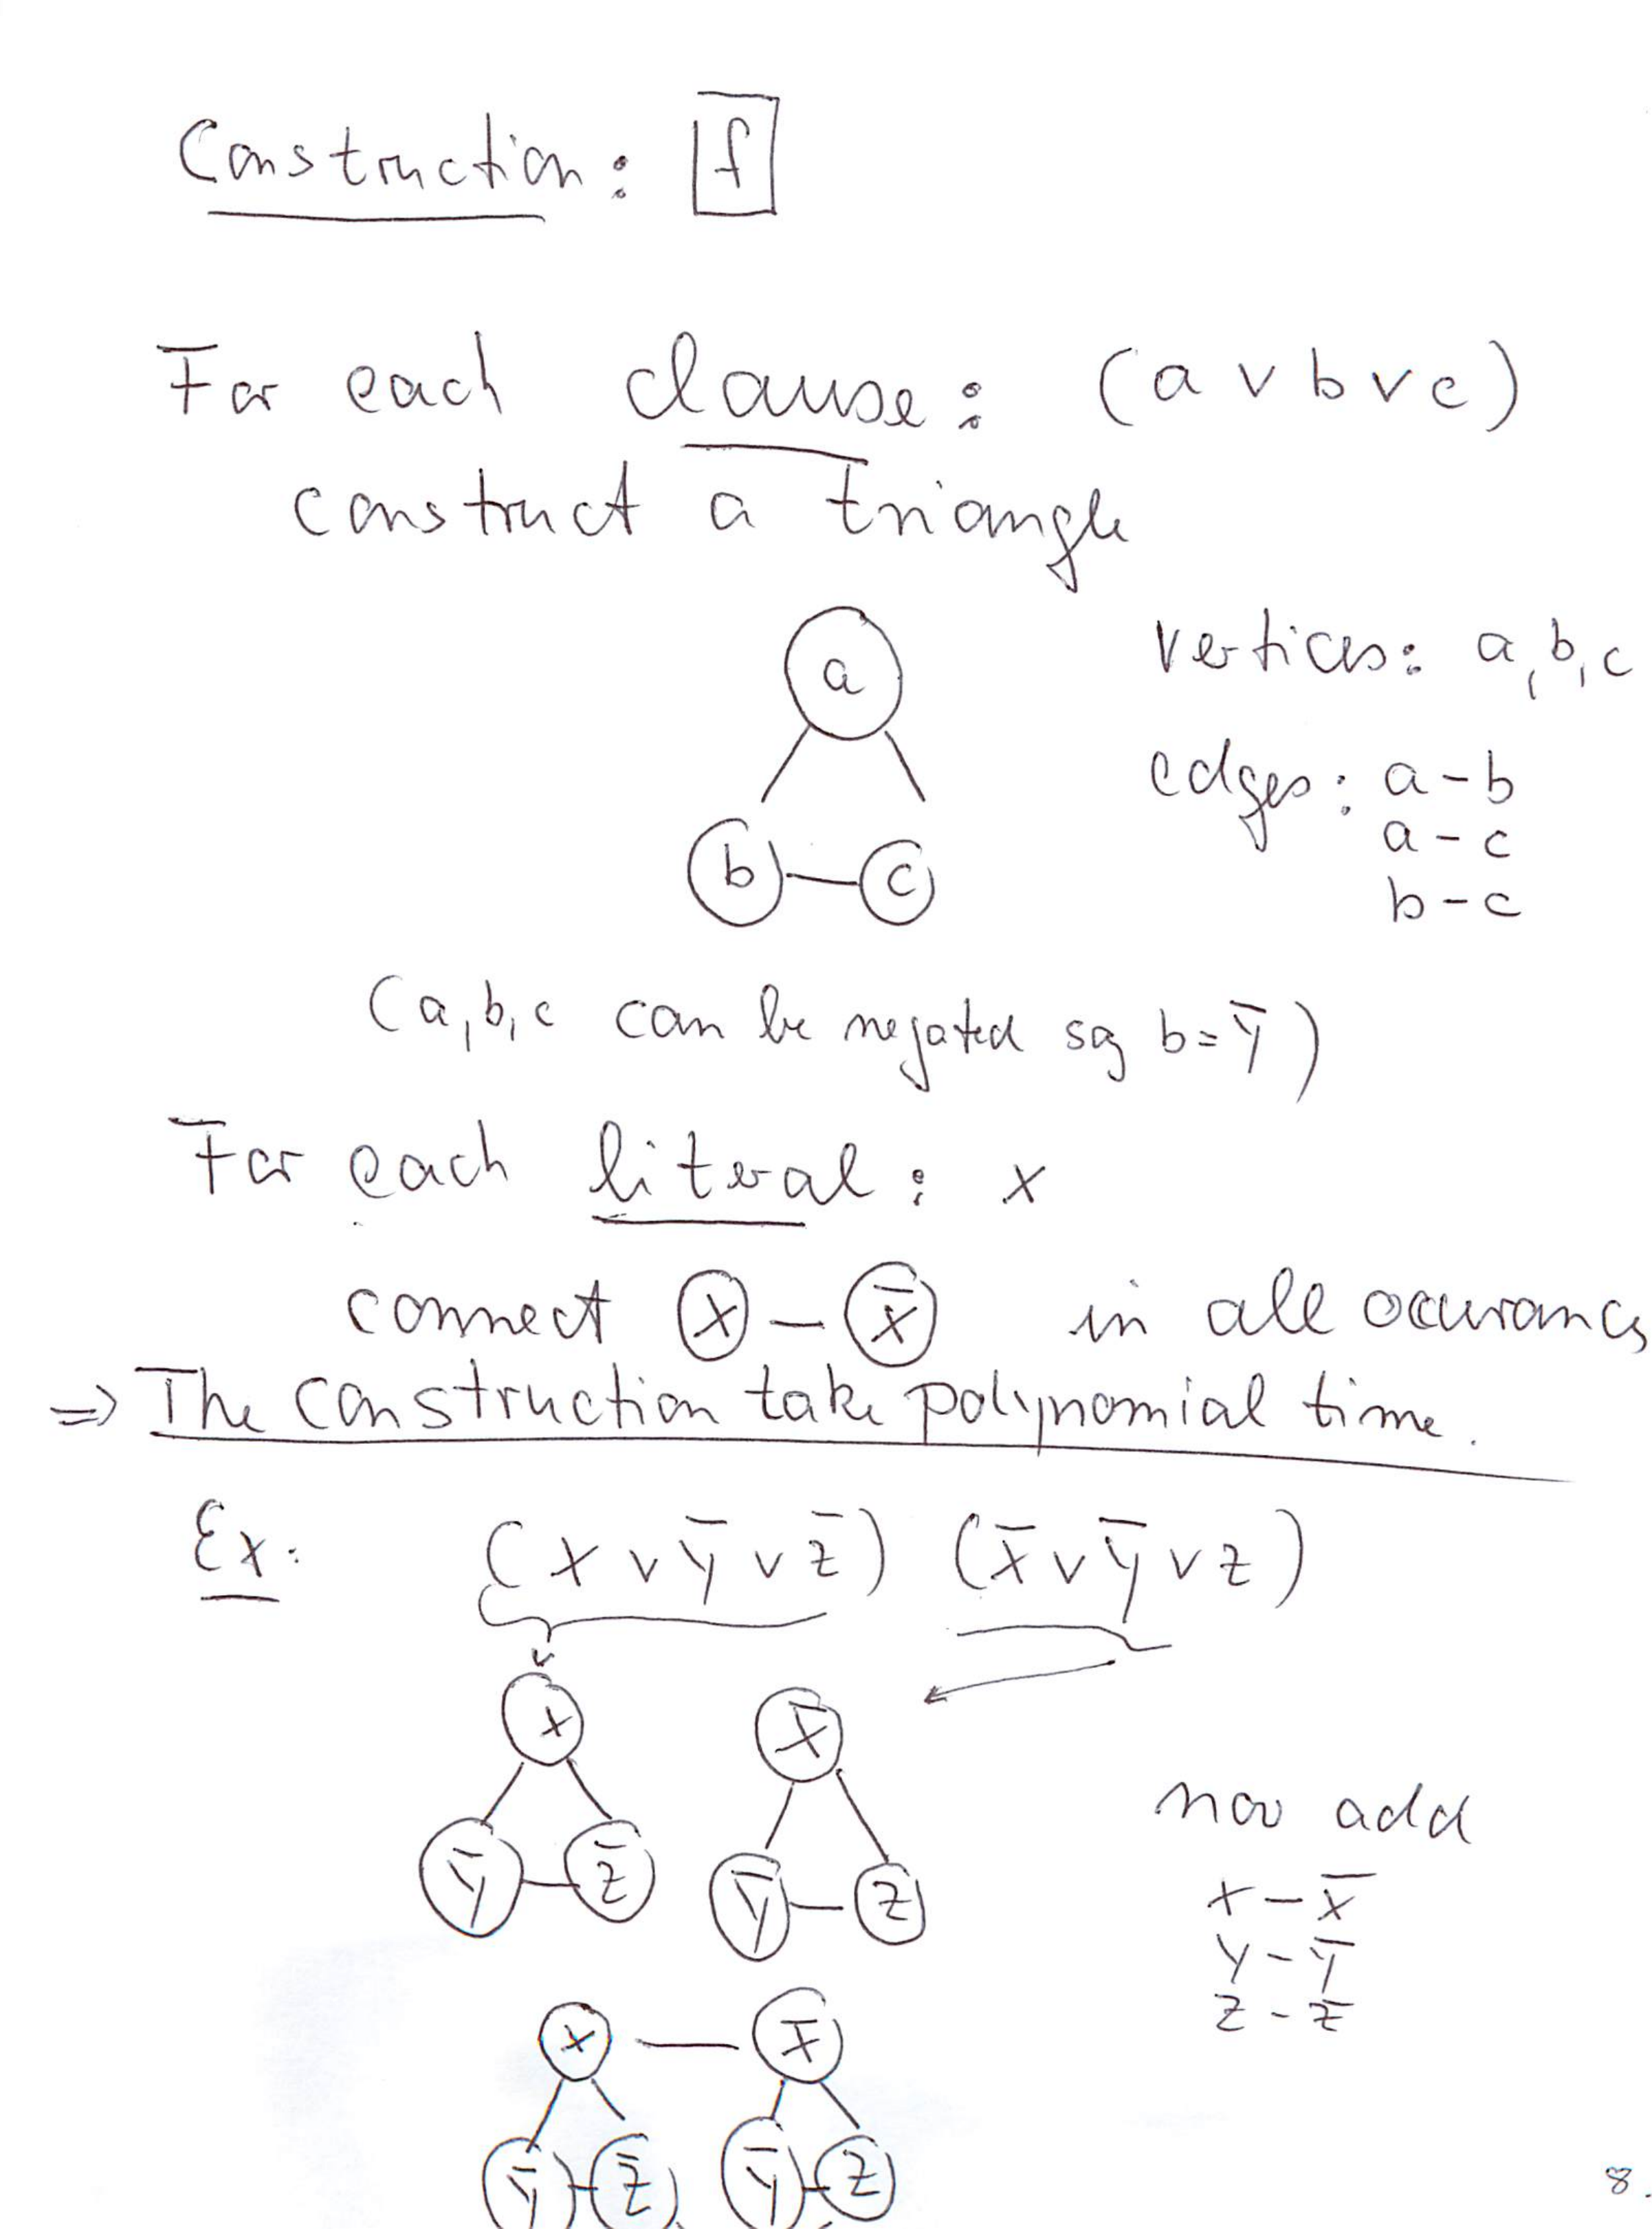 Construction: f
For each clause: (a ∨ b ∨ c)
construct a triangle
a
vertices: a, b, c
edges: a - b
a - c
b - c
b c
(a, b, c can be negated say b = ȳ)
For each literal: x
connect x - x̄ in all occurancs
⇒ The construction take polynomial time.
Ex: (x ∨ ȳ ∨ z̄) (x̄ ∨ ȳ ∨ z)
x x̄
ȳ z̄ ȳ z
now add
x - x̄
y - ȳ
z - z̄
x x̄
ȳ z̄ ȳ z
8.